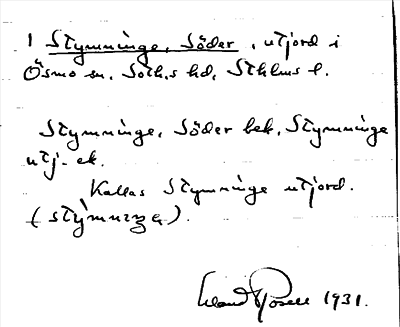 1 Stymninge, Söder, utjord i
Ösmo sn. Soth.s hd, Sthlms l.
Stymninge, Söder bek. Stymninge
utj. ek.
Kallas Stymninge utjord.
1931.